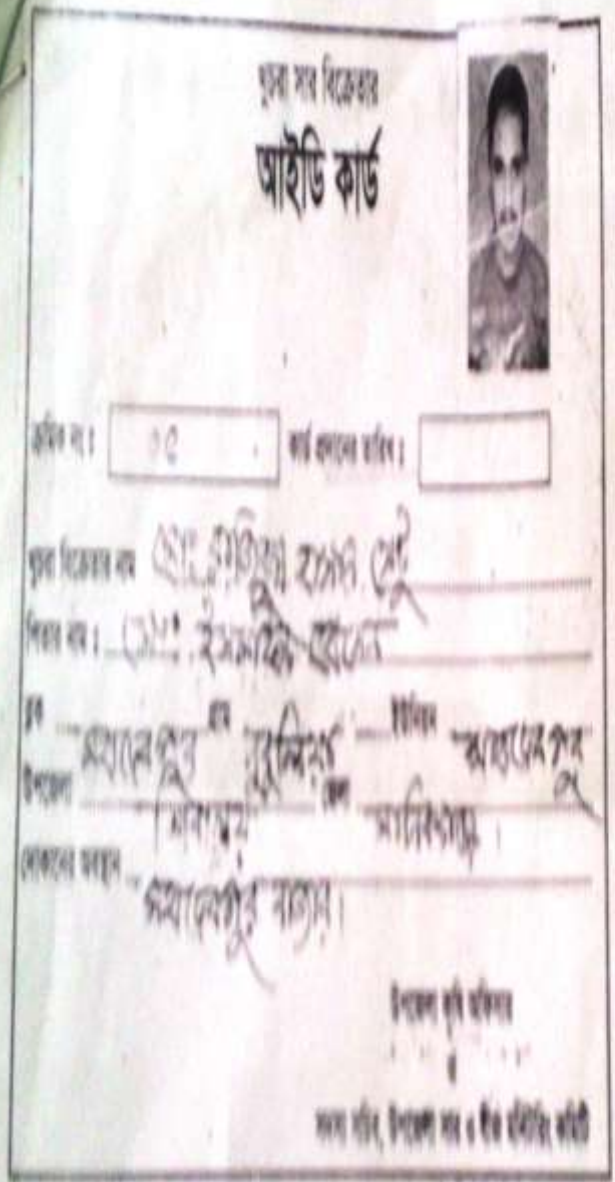 খুচরা সার বিক্রেতার
আইডি কার্ড
ক্রমিক নং : ০৫ কার্ড প্রদানের তারিখ :
খুচরা বিক্রেতার নাম মোঃ হাসান সেটু
পিতার নাম : মোঃ ইসমাইল হোসেন
ব্লক মহাদেবপুর গ্রাম ইউনিয়ন মহাদেবপুর
উপজেলা শিবালয় জেলা মানিকগঞ্জ ।
দোকানের অবস্থান মহাদেবপুর বাজার ।
উপজেলা কৃষি অফিসার
ও
সদস্য সচিব, উপজেলা সার ও বীজ মনিটরিং কমিটি